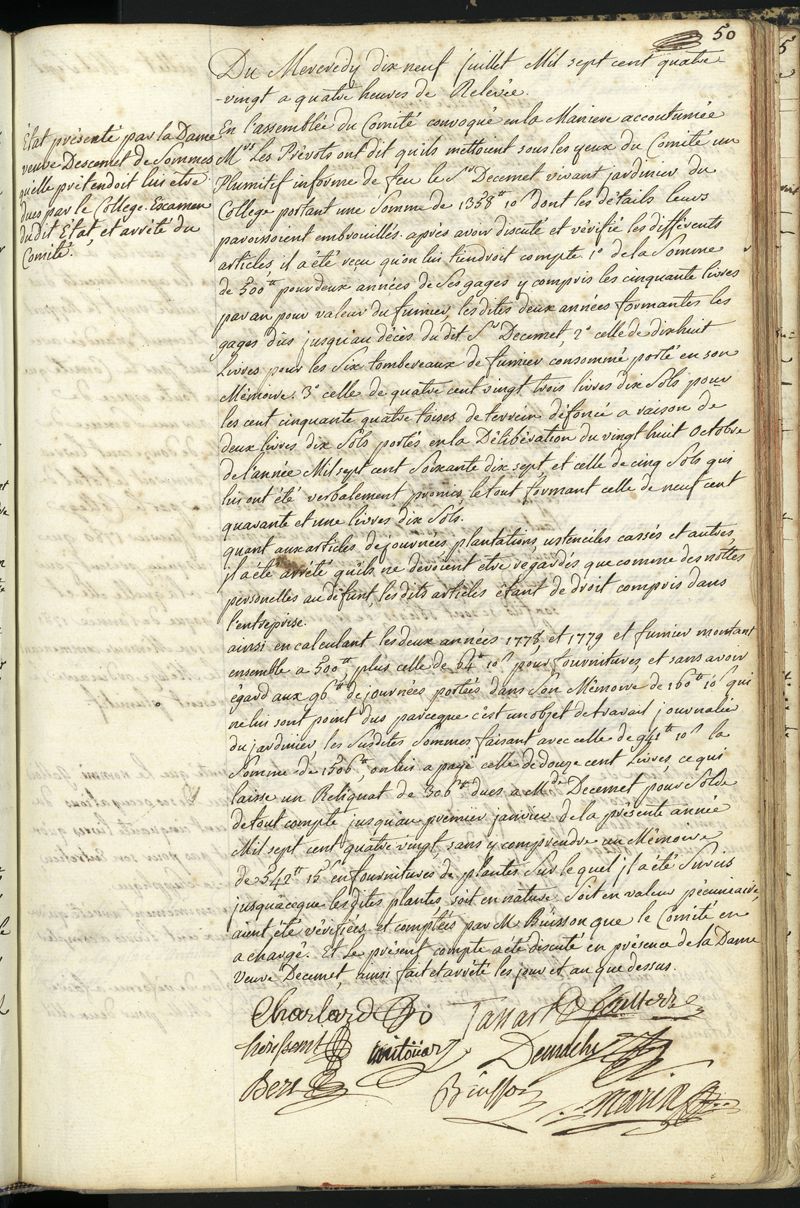 50
Du Mercredy dix neuf juillet Mil sept cent quatre
-vingt a quatre heures de Relevée.
État présenté par la Dame
veuve Descemet de Sommes
qu'elle prétendoit lui etre
dues par le College. Examen
du dit État, et arrêté du
Comité.
En l'assemblée du Comité convoqué en la Maniere accoutumée
Mrs les Prévots ont dit qu'ils mettoient sous les yeux du Comité un
Plumitif informe de feu le Sr Decemet vivant jardinier du
College portant une Somme de 1358tt 10s dont les détails leurs
paroissoient embrouillés. après avoir discuté et vérifié les différents
articles, il a été reçu qu'on lui tiendroit compte. 1o de la Somme
de 500tt pour deux années de Ses gages y compris les cinquante livres
par an pour valeur du fumier, les dites deux années formantes les
gages dûs jusqu'au décès du dit Sr Decemet, 2o celle de dixhuit
Livres pour les Six tombereaux de fumier consommé porté en son
Mémoire. 3o celle de quatre cent vingt trois livres dix Sols pour
les cent cinquante quatre toises de terrein défoncé a raison de
deux livres dix Sols portés en la Délibération du vingt huit Octobre
de l'année Mil sept cent Soixante dix sept et celle de cinq Sols qui
lui ont été verbalement promis le tout formant celle de neuf cent
quarante et une livres dix Sols.
quant aux articles de journées, plantations ustenciles cassés et autres
il a été arrêté qu'ils ne devoient etre regardés que comme des nottes
personelles au défunt, les dits articles étant de droit compris dans
l'entreprise.
ainsi en calculant les deux années 1778, et 1779 et fumier montant
ensemble a 500tt plus celle de 64tt 10s pour fournitures et sans avoir
égard aux 96tt de journées portées dans Son Mémoire de 160tt 10s qui
ne lui sont point dus parceque c'est un objet de travail journalier
du jardinier, les Susdites Sommes faisant avec celle de 941tt 10s la
Somme de 1506tt, on lui a payé celle de douze cent Livres, ce qui
laisse un Reliquat de 306tt dues a Mde Decemet pour Solde
de tout compte jusqu'au premier janvier de la présente année
Mil sept cent quatre vingt sans y comprendre un Mémoire
de 542tt 15s en fournitures de plantes Sur lequel il a été Surcis
jusqu'aceque les dites plantes, soit en nature Soit en valeur pécuniaire,
aient été vérifiées et comptées par M. Buisson que le Comité en
a chargé. Et le présent compte a été discuté en présence de la Dame
Veuve Decemet, ainsi fait et arrêté les jour et an que dessus.
Charlard
Herissant Demachy
Buisson Marin